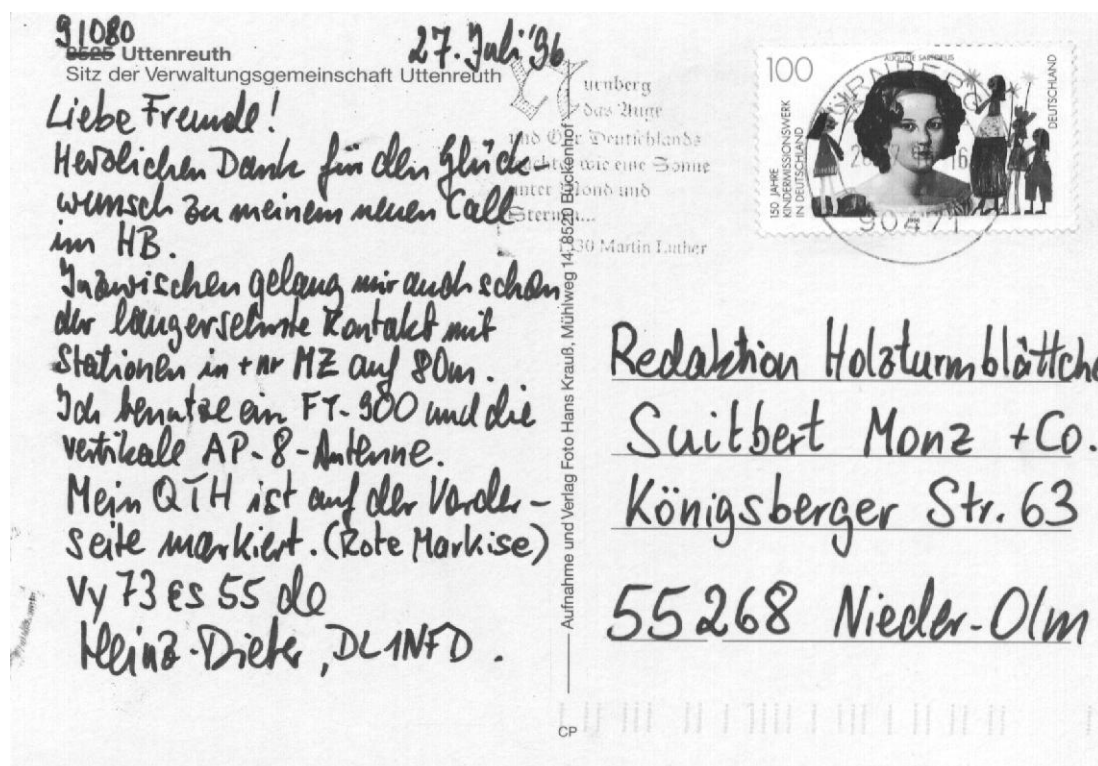 91080
8525 Uttenreuth
Sitz der Verwaltungsgemeinschaft Uttenreuth
27. Juli '96
Liebe Freunde!
Herzlichen Dank für den Glück-
wunsch zu meinem neuen Call
im HB.
Inzwischen gelang mir auch schon
der langersehnte Kontakt mit
Stationen in + nr MZ auf 80m.
Ich benutze ein FT-900 und die
vertikale AP-8-Antenne.
Mein QTH ist auf der Vorder-
seite markiert. (Rote Markise)
Vy 73 es 55 de
Heinz-Dieter, DL1NFD.
Aufnahme und Verlag Foto Hans Krauß, Mühlweg 14, 8520 Buckenhof
CP
Nürnberg
das Auge
und Ohr Deutschlands
leuchtet wie eine Sonne
unter Mond und
Sternen...
1530 Martin Luther
100
AUGUSTE SARTORIUS
DEUTSCHLAND
150 JAHRE
KINDERMISSIONSWERK
IN DEUTSCHLAND
NÜRNBERG
90471
Redaktion Holzturmblättche
Suitbert Monz + Co.
Königsberger Str. 63
55268 Nieder-Olm